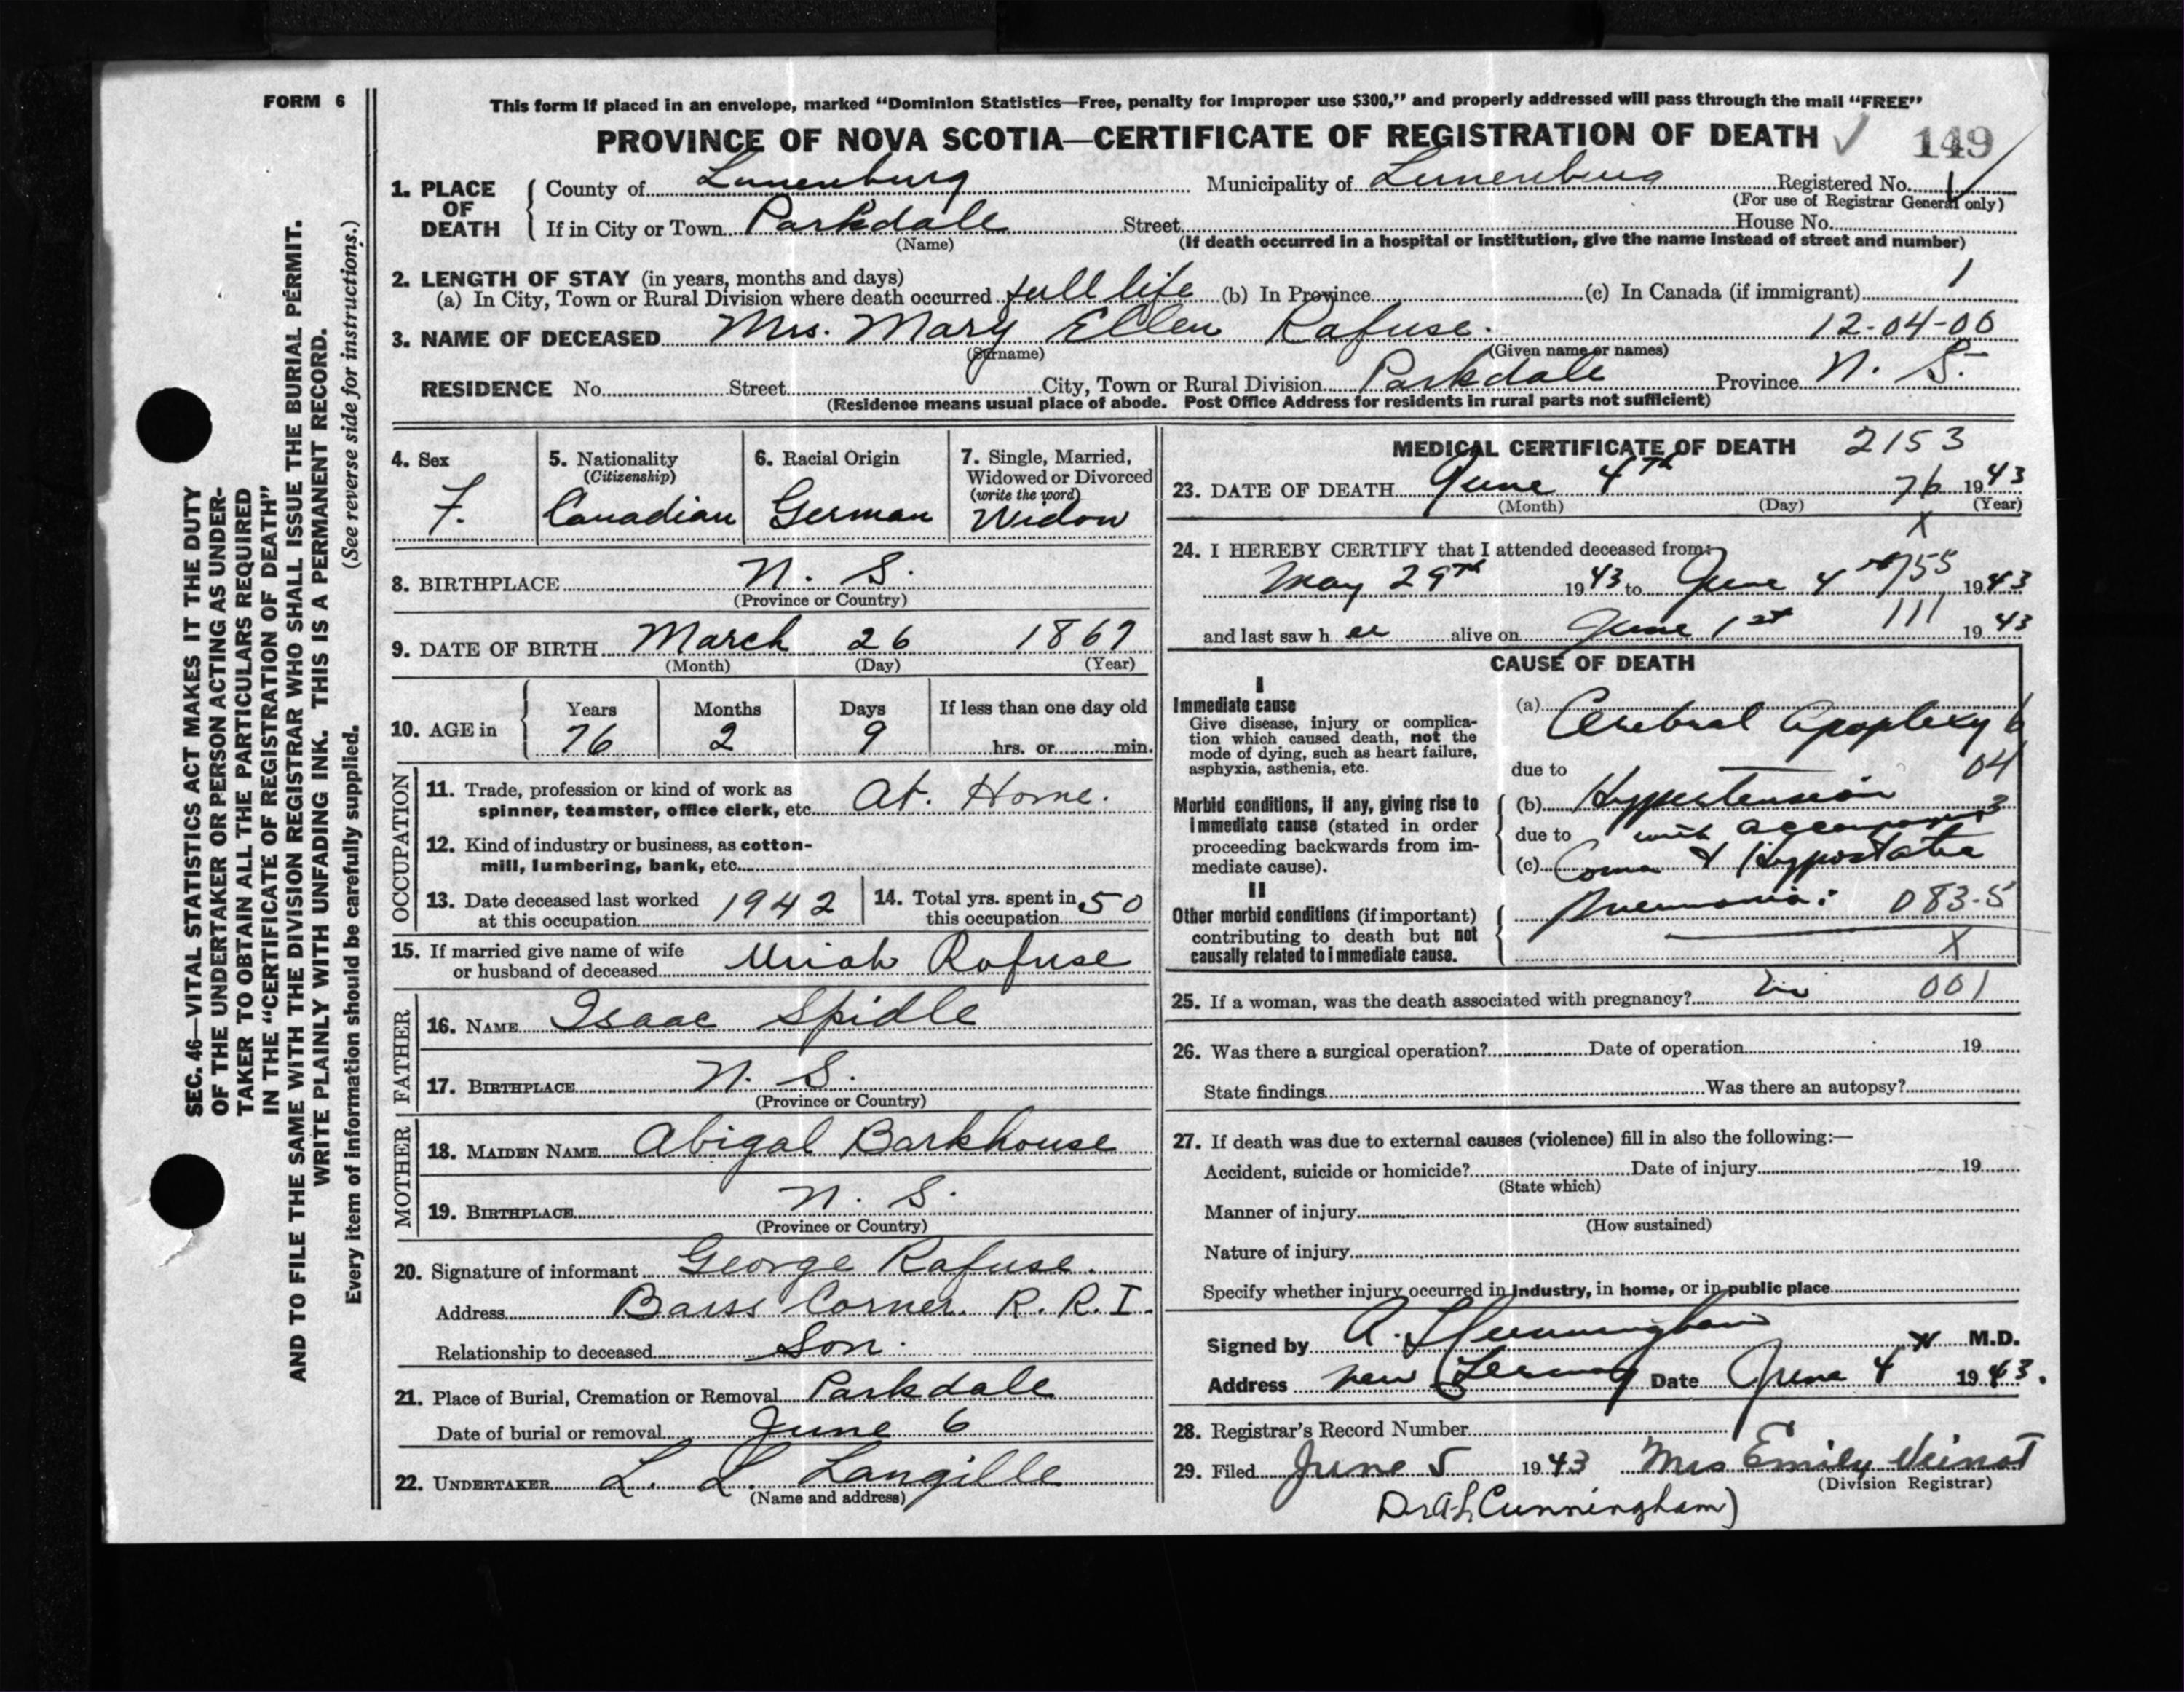 FORM 6
This form if placed in an envelope, marked “Dominion Statistics—Free, penalty for improper use $300,” and properly addressed will pass through the mail “FREE”
PROVINCE OF NOVA SCOTIA—CERTIFICATE OF REGISTRATION OF DEATH ✓ 149
1. PLACE OF DEATH County of Lunenburg Municipality of Lunenburg Registered No.
(For use of Registrar General only)
If in City or Town Parkdale Street House No.
(Name) (If death occurred in a hospital or institution, give the name instead of street and number)
2. LENGTH OF STAY (in years, months and days)
(a) In City, Town or Rural Division where death occurred full life (b) In Province (c) In Canada (if immigrant) 1
3. NAME OF DECEASED Mrs. Mary Ellen Rafuse. 12-04-00
(Surname) (Given name or names)
RESIDENCE No. Street City, Town or Rural Division Parkdale Province N. S.
(Residence means usual place of abode. Post Office Address for residents in rural parts not sufficient)
4. Sex F.
5. Nationality (Citizenship) Canadian
6. Racial Origin German
7. Single, Married, Widowed or Divorced (write the word) Widow
8. BIRTHPLACE N. S.
(Province or Country)
9. DATE OF BIRTH March 26 1867
(Month) (Day) (Year)
10. AGE in Years 76 Months 2 Days 9 If less than one day old hrs. or min.
OCCUPATION
11. Trade, profession or kind of work as spinner, teamster, office clerk, etc. At. Home.
12. Kind of industry or business, as cotton-mill, lumbering, bank, etc.
13. Date deceased last worked at this occupation 1942
14. Total yrs. spent in this occupation 50
15. If married give name of wife or husband of deceased Uriah Rafuse
FATHER
16. NAME Isaac Spidle
17. BIRTHPLACE N. S.
(Province or Country)
MOTHER
18. MAIDEN NAME Abigal Barkhouse
19. BIRTHPLACE N. S.
(Province or Country)
20. Signature of informant George Rafuse.
Address Barss Corner. R. R. I.
Relationship to deceased Son.
21. Place of Burial, Cremation or Removal Parkdale
Date of burial or removal June 6
22. UNDERTAKER L. L. Langille
(Name and address)
MEDICAL CERTIFICATE OF DEATH 2153
23. DATE OF DEATH June 4th 76 1943
(Month) (Day) (Year)
X
24. I HEREBY CERTIFY that I attended deceased from:
May 29th 1943 to June 4th 755 1943
and last saw her alive on June 1st 111 1943
CAUSE OF DEATH
I
Immediate cause
Give disease, injury or complication which caused death, not the mode of dying, such as heart failure, asphyxia, asthenia, etc.
(a) Cerebral Apoplexy
due to 04
Morbid conditions, if any, giving rise to immediate cause (stated in order proceeding backwards from immediate cause).
(b) Hypertension
due to with
(c) Coma & Hypostatic
II
Other morbid conditions (if important) contributing to death but not causally related to immediate cause.
Pneumonia: 083-5
X
25. If a woman, was the death associated with pregnancy? no 001
26. Was there a surgical operation? Date of operation 19
State findings Was there an autopsy?
27. If death was due to external causes (violence) fill in also the following:—
Accident, suicide or homicide? Date of injury 19
(State which)
Manner of injury
(How sustained)
Nature of injury
Specify whether injury occurred in industry, in home, or in public place
Signed by A. L. Cunningham M.D.
Address New Germany Date June 4 1943.
28. Registrar's Record Number
29. Filed June 5 1943 Mrs Emily Veinot
(Division Registrar)
Dr A L Cunningham)
SEC. 46—VITAL STATISTICS ACT MAKES IT THE DUTY
OF THE UNDERTAKER OR PERSON ACTING AS UNDER-
TAKER TO OBTAIN ALL THE PARTICULARS REQUIRED
IN THE “CERTIFICATE OF REGISTRATION OF DEATH”
AND TO FILE THE SAME WITH THE DIVISION REGISTRAR WHO SHALL ISSUE THE BURIAL PERMIT.
WRITE PLAINLY WITH UNFADING INK. THIS IS A PERMANENT RECORD.
Every item of information should be carefully supplied. (See reverse side for instructions.)